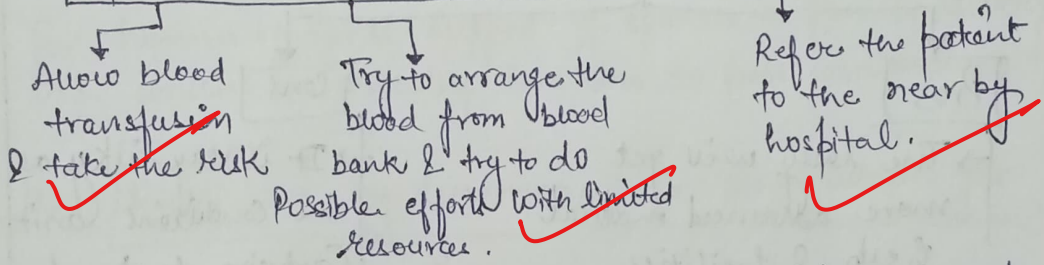 Allow blood
transfusion
& take the risk
Try to arrange the
blood from blood
bank & try to do
Possible efforts with limited
resources.
Refer the patient
to the near by
hospital.